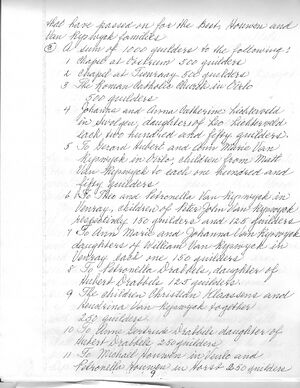 that have passed on for the Best, Houwen and
Van Rypwyck families
③ A sum of 1000 guilders to the following:
1 Chapel at Oostrum 500 guilders
2 Chapel at Tienray 500 guilders
3 The Roman Catholic Church in Oirlo
500 guilders
4 Johanna and Anna Catherine Lichteveld
in Swolgen, daughters of Leo Lichteveld
each two hundred and fifty guilders.
5 To Gerard Hubert and Ann Marie Van
Rypwyck in Oirlo, children from Matt
Van Rypwyck to each one hundred
and fifty guilders
6 To Theo and Petronella Van Rypwyck in
Venray, children of Peter John Van Rypwyck
respectively guilders and 125 guilders
7 To Ann Marie and Johanna Van Rypwyck
daughters of William Van Rypwyck in
Venray each one 150 guilders
8 To Petronella Drabbels, daughter of
Hubert Drabbels 125 guilders.
9 The children Christian Klaassens and
Hendrina Van Rypwyck together
250 guilders
10 To Anna Gertrude Drabbels daughter of
Hubert Drabbels 250 guilders
11 To Michael Houwen in Venlo and
Petronella in Horst 250 guilders